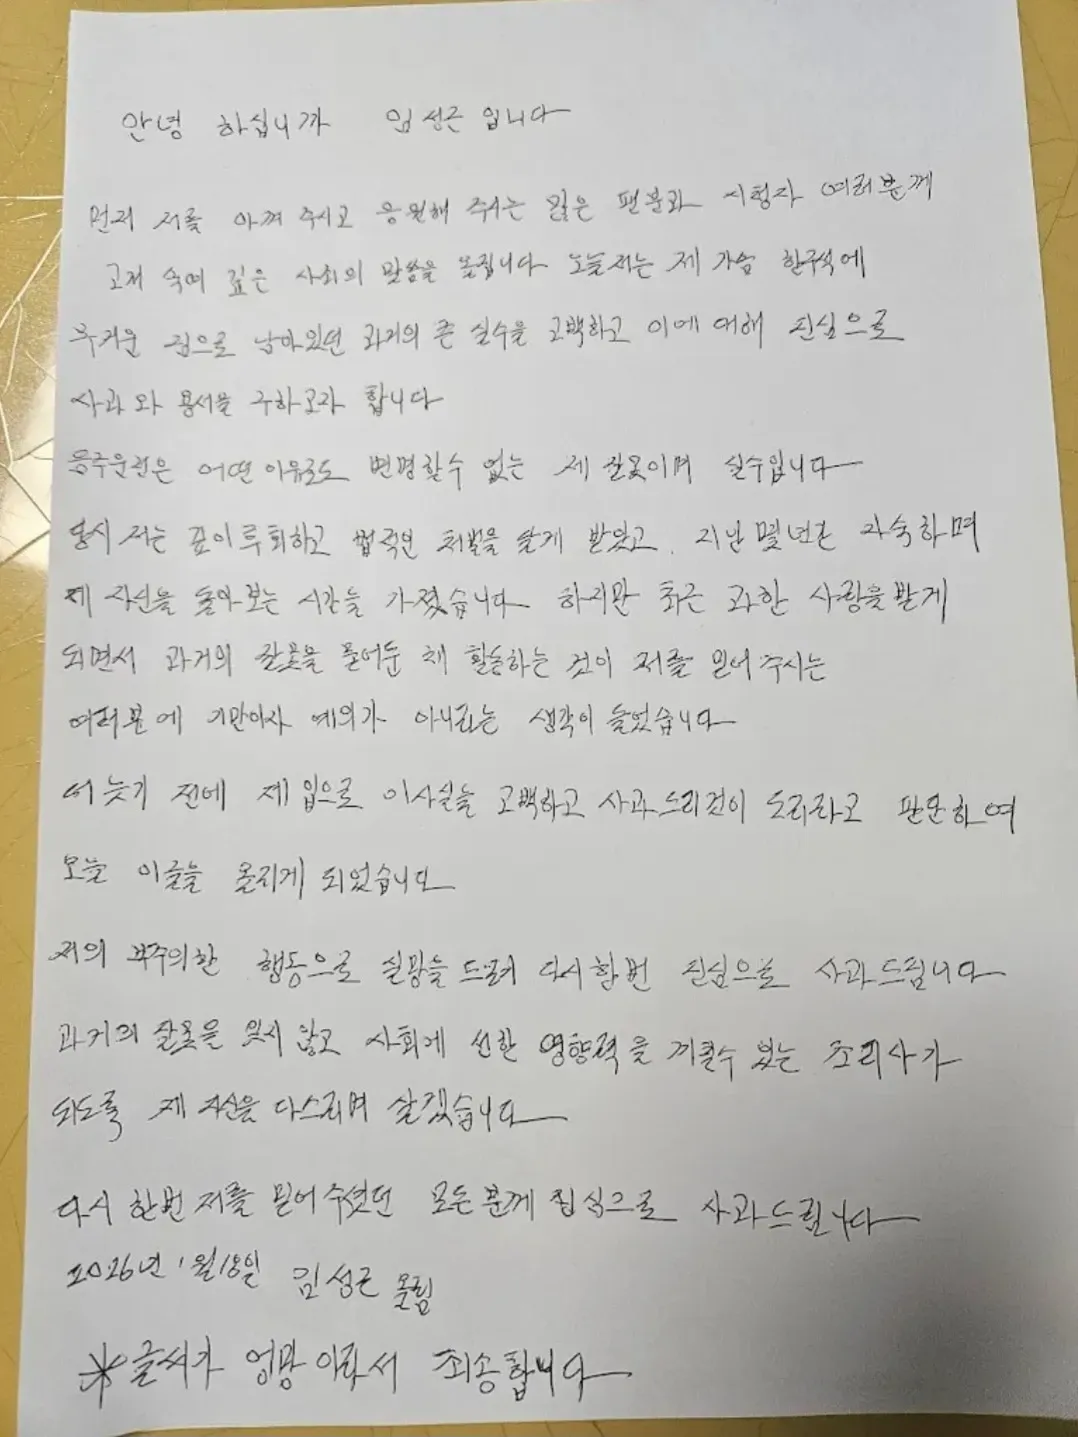 안녕 하십니까 임성근 입니다
먼저 저를 아껴 주시고 응원해 주시는 많은 팬분과 시청자 여러분께
고개 숙여 깊은 사죄의 말씀을 올립니다 오늘 저는 제 가슴 한구석에
무거운 짐으로 남아있던 과거의 큰 실수를 고백하고 이에 대해 진심으로
사과와 용서를 구하고자 합니다
음주운전은 어떤 이유로도 변명할수 없는 제 잘못이며 실수입니다
당시 저는 깊이 후회하고 법적인 처벌을 달게 받았고. 지난 몇년간 자숙하며
제 자신을 돌아보는 시간을 가졌습니다 하지만 최근 과한 사랑을 받게
되면서 과거의 잘못을 묻어둔 채 활동하는 것이 저를 믿어 주시는
여러분에 기만이자 예의가 아니라는 생각이 들었습니다
더 늦기 전에 제 입으로 이사실을 고백하고 사과드리것이 도리라고 판단하여
오늘 이글을 올리게 되었습니다
저의 부주의한 행동으로 실망을 드려 다시함번 진심으로 사과드립니다
과거의 잘못을 잊지 않고 사회에 선한 영향력을 끼칠수 있는 조리사가
되도록 제 자신을 다스리며 살겠습니다
다시 한번 저를 믿어 주셨던 모든분께 진심으로 사과드립니다
2026년 1월 18일 임성근 올림
※글씨가 엉망이라서 죄송합니다